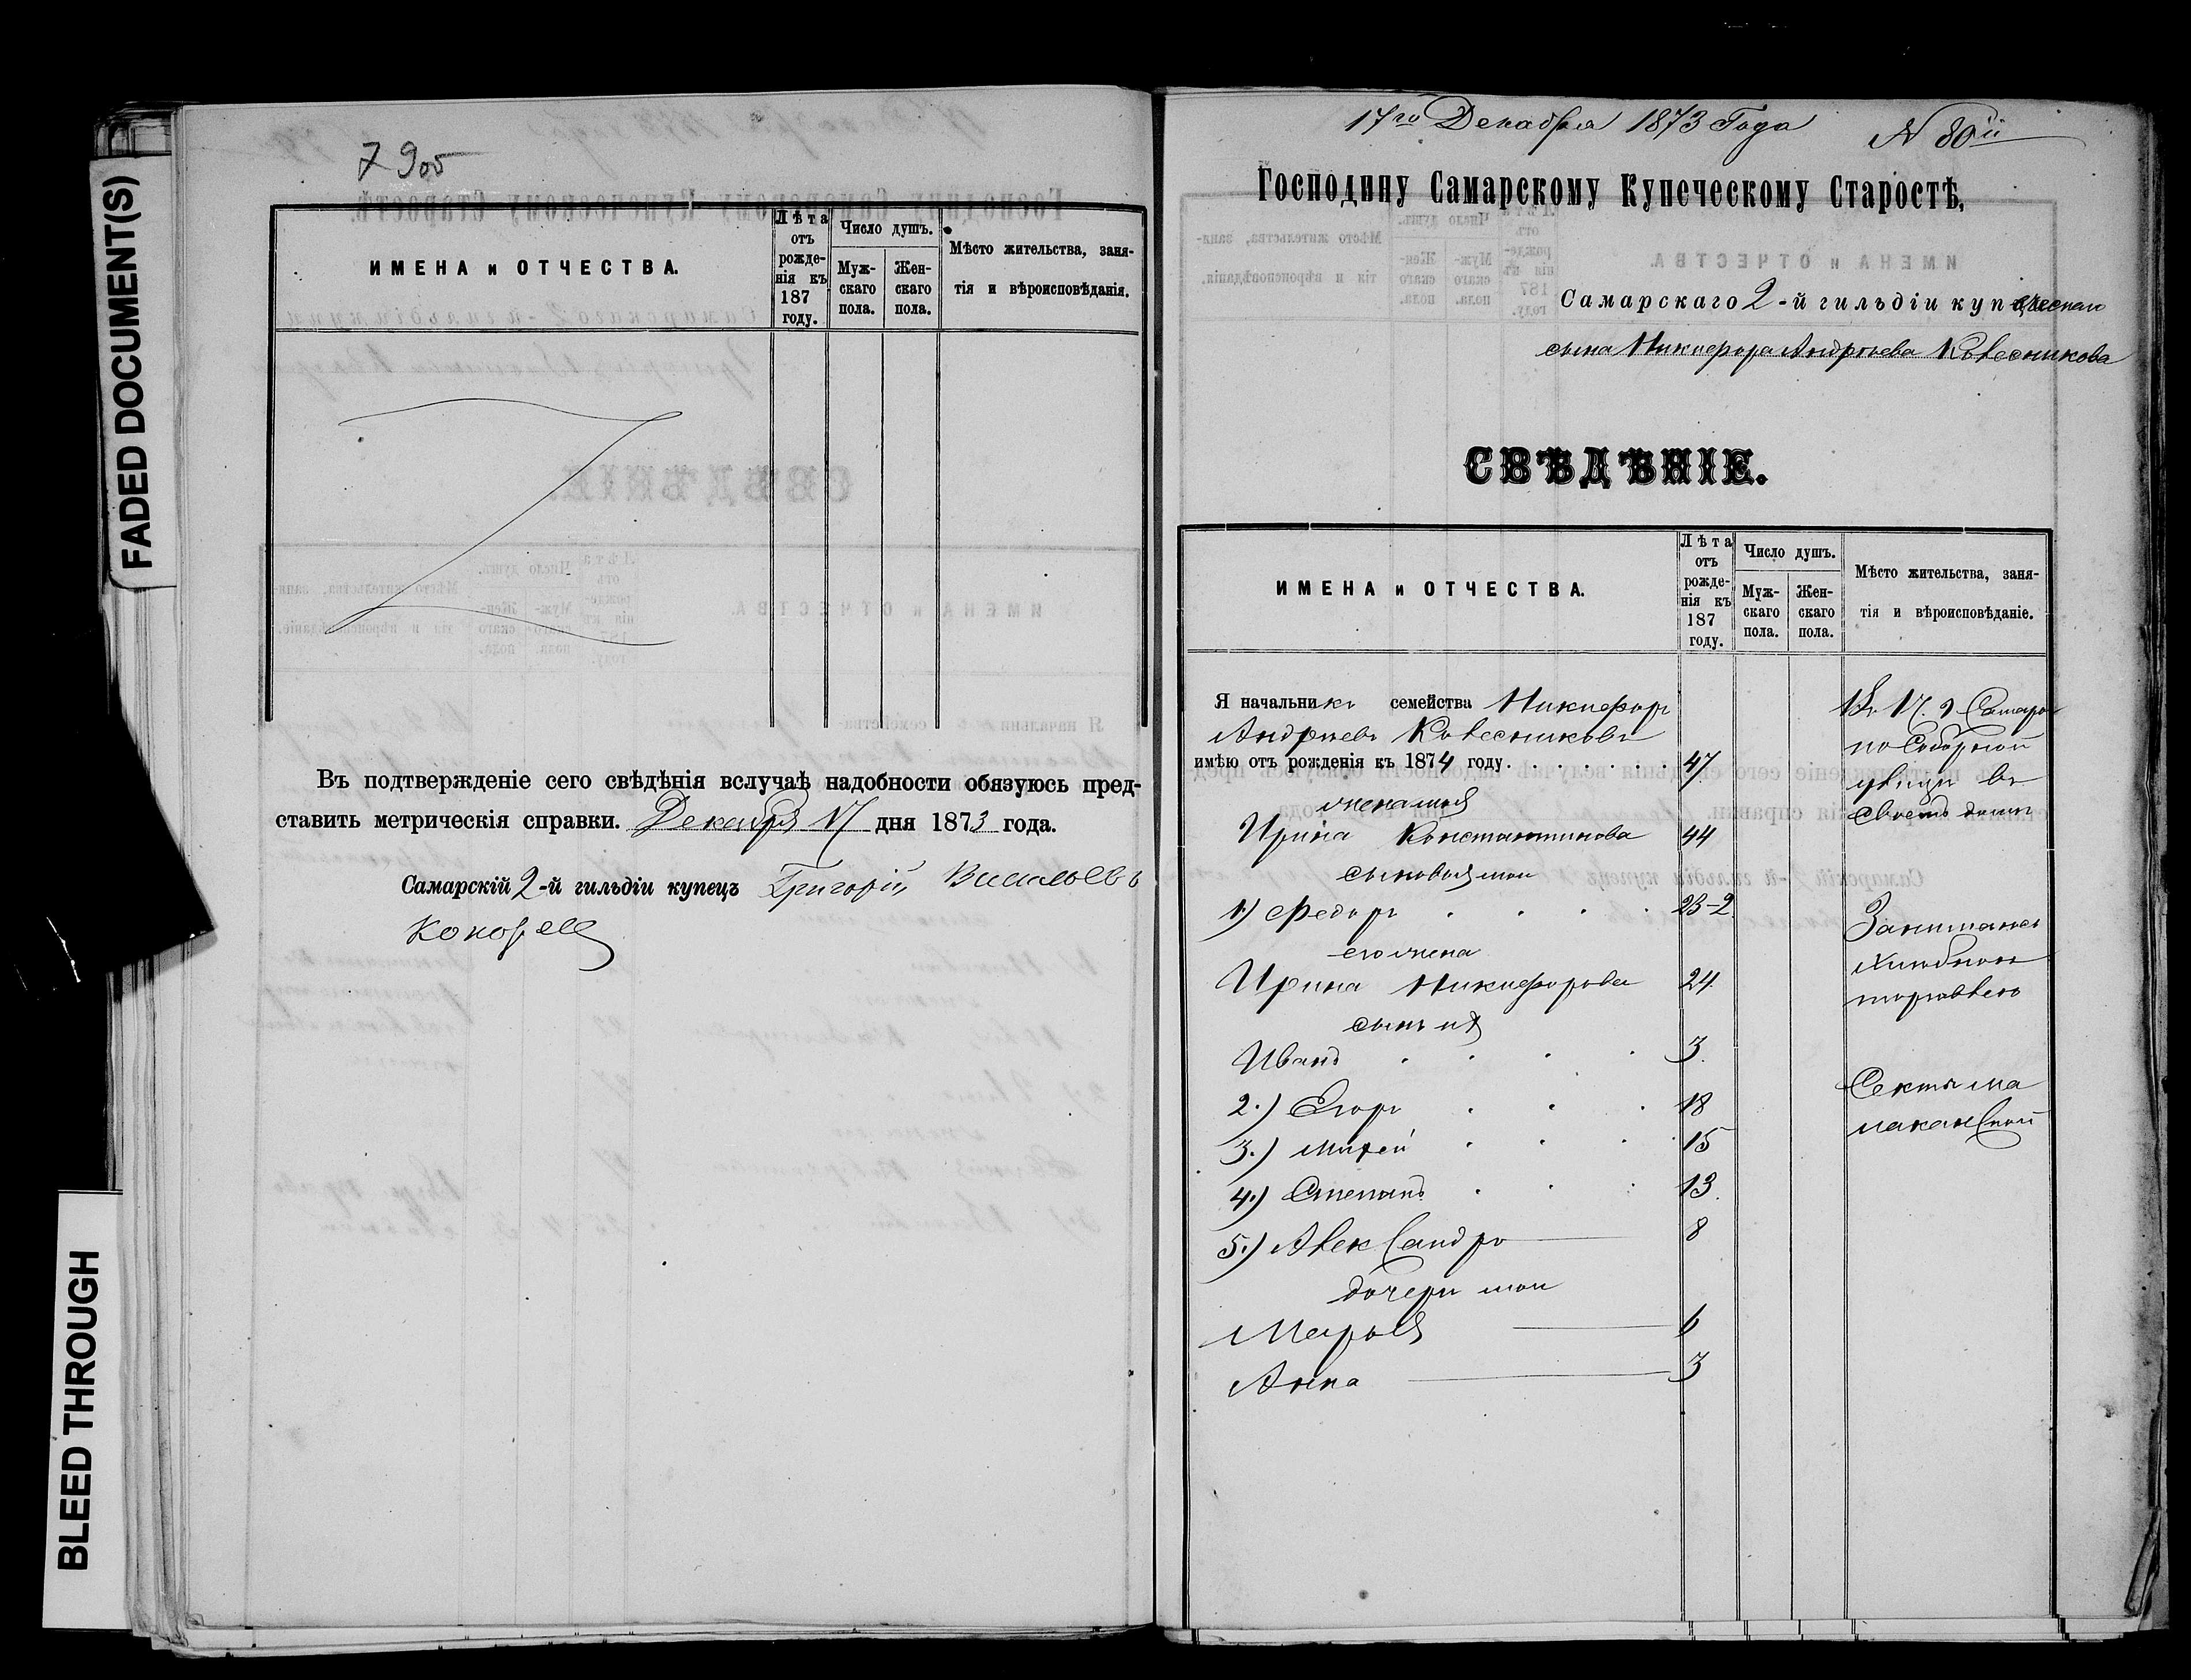 FADED DOCUMENT(S)
BLEED THROUGH
7 9об
ИМЕНА и ОТЧЕСТВА.
Лѣта отъ рожде-нія къ 187 году.
Число душъ.
Муж-скаго пола.
Жен-скаго пола.
Мѣсто жительства, заня-
тія и вѣроисповѣданія.
Въ подтвержденіе сего свѣдѣнія вслучаѣ надобности обязуюсь пред-
ставить метрическія справки. Декабря 17 дня 1873 года.
Самарскій 2-й гильдіи купецъ Григорій Васильевъ
17го Декабря 1873 Года N 80й
Господину Самарскому Купеческому Старостѣ,
Самарскаго 2-й гильдіи купеческаго
сына Никифора Андреева Колесникова
СВѢДѢНІЕ.
ИМЕНА и ОТЧЕСТВА.
Лѣта отъ рожде-нія къ 187 году.
Число душъ.
Муж-скаго пола.
Жен-скаго пола.
Мѣсто жительства, заня-
тія и вѣроисповѣданіе.
Я начальникъ семейства Никифоръ
Андреевъ Колесниковъ
имѣю отъ рожденія къ 1874 году. 47
жена моя
Ирина Константинова 44
сыновья мои
1.) Федоръ 23-2
его жена
Ирина Никифорова 24
сынъ ихъ
Иванъ 3
2.) Егоръ 18
3.) Михей 15
4.) Степанъ 13
5.) Александръ 8
дочери мои
Марья 6
Анна 3
Въ Г. Самаре
по Соборной
улицѣ въ
своемъ домѣ
Занимаюсь
хлебною
торговлею
Секты ма
лаканской